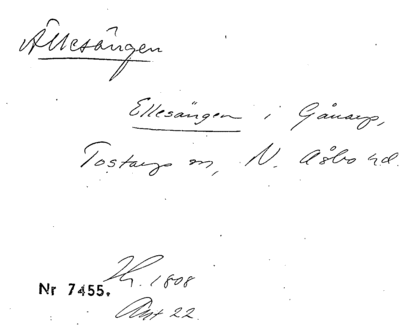 Ällesängen
Ellesängen i Gånarp,
Tostarp sn, N. Åsbo hd.
Hr. 1808
Nr 7455.
Akt 22.